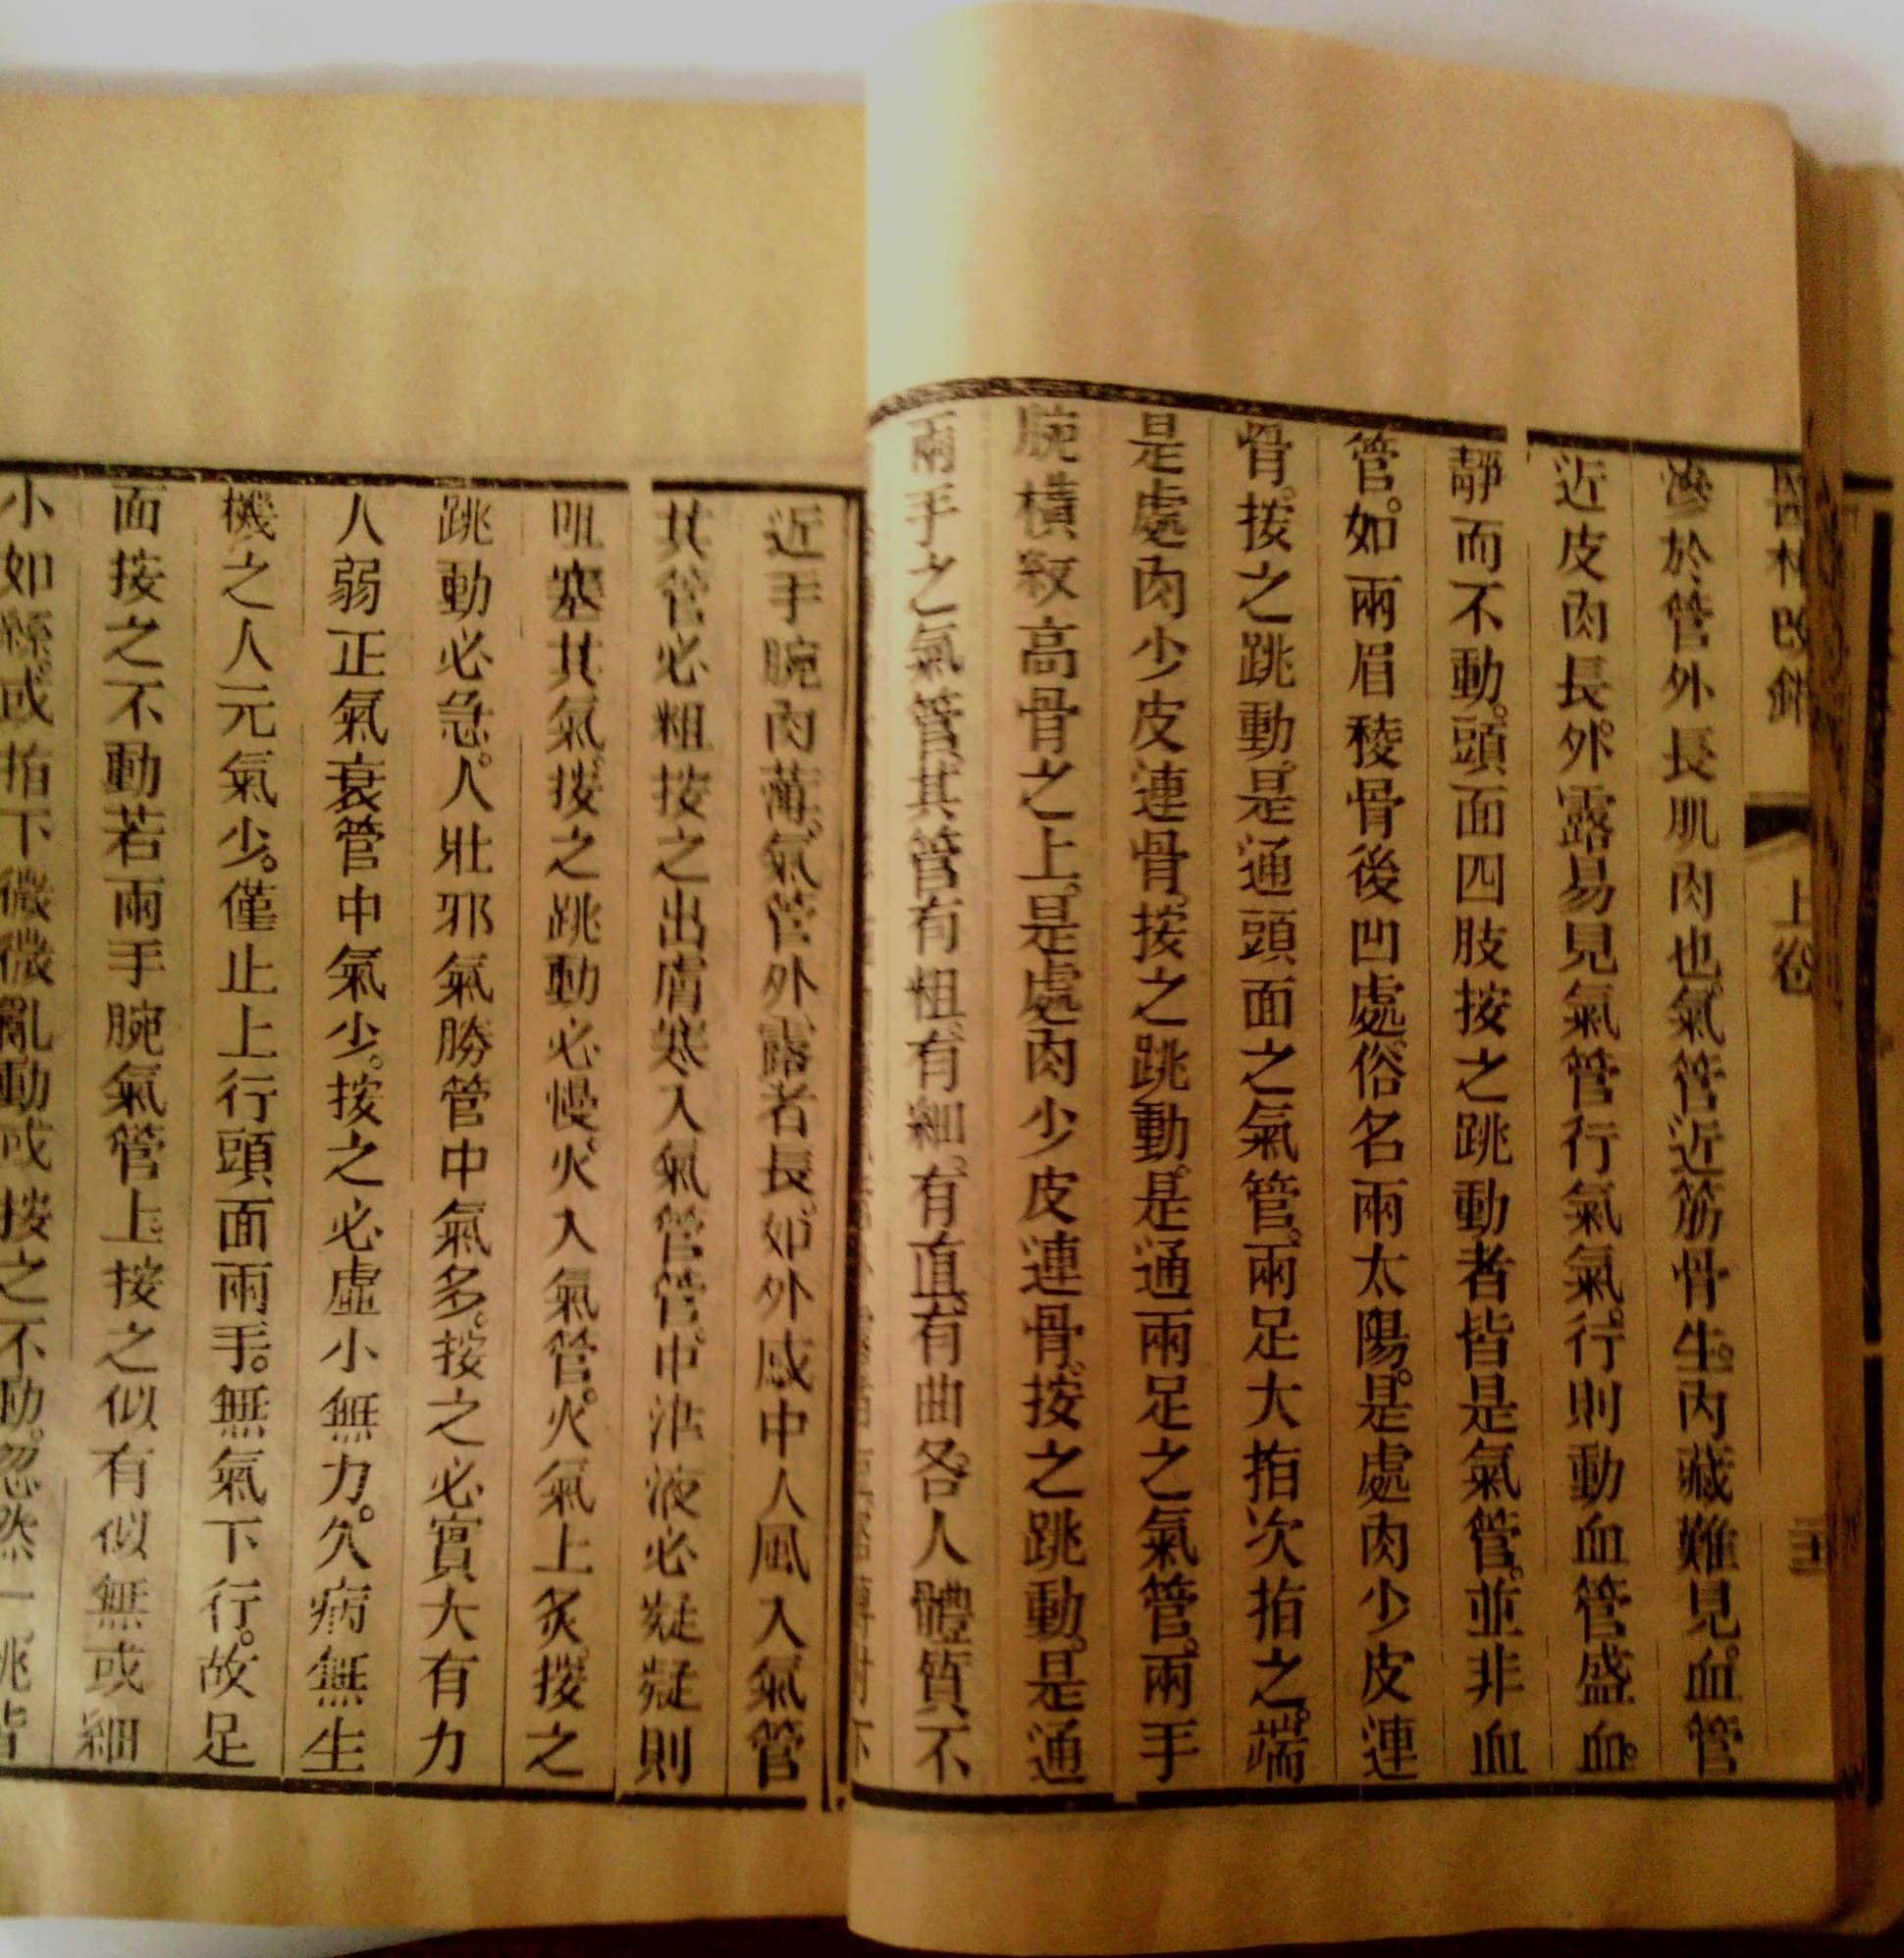 醫林改錯 上卷
滲於管外長肌肉也氣管近筋骨生內藏難見。血管
近皮肉長。外露易見氣管行氣氣。行則動血管盛血。
靜而不動。頭面四肢按之跳動者皆是氣管。並非血
管。如兩眉稜骨後凹處俗名兩太陽。是處肉少皮連
骨。按之跳動。是通頭面之氣管。兩足大指次指之。端
是處肉少皮連骨。按之跳動。是通兩足之氣管。兩手
腕橫紋高骨之上。是處肉少皮連骨。按之跳動。是通
兩手之氣管、其管有粗、有細。有直、有曲。各人體質不
近手腕肉薄。氣管外露者長。如外感中人風入氣管
其管必粗按之出膚寒入氣管管。中津液必凝凝則
阻塞其氣。按之跳動必慢、火入氣管。火氣上炙。按之
跳動必急。人壯邪氣勝管中氣多。按之必實大有力
人弱正氣衰管中氣少。按之必虛小無力。久病無生
機之人元氣少。僅止上行頭面兩手。無氣下行。故足
面按之不動若兩手腕氣管上。按之似有似無或細
小如絲。或指下微微亂動或按之不動。忽然一跳皆